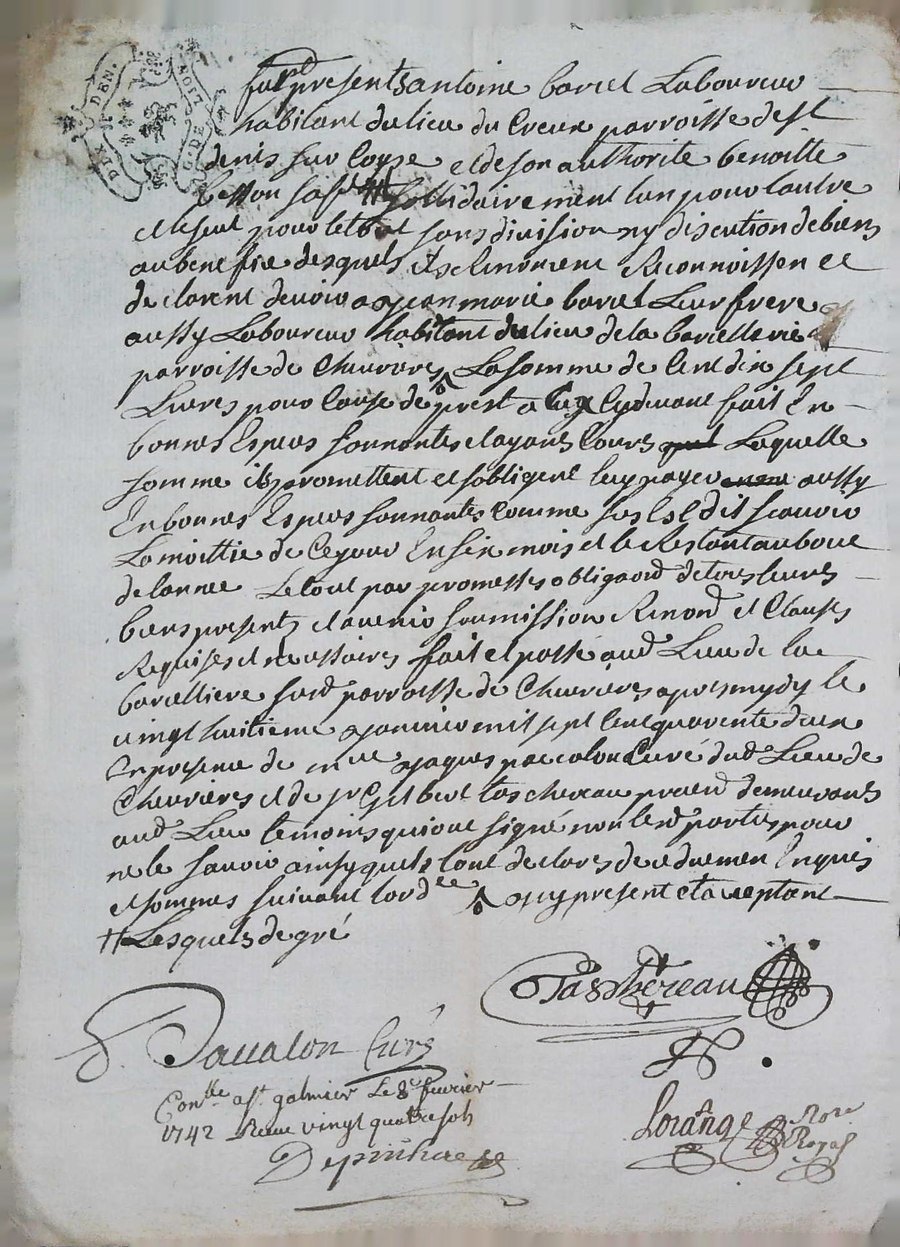 DEN.
G. DE LION
furt presents antoine barcel Laboureur
habitant du lieu du Creux parroisse de st
denis sur Coyse et de son authorité benoitte
besson sa fe ╫ solidairement lun pour lautre
et le seul pour le tout sans division ny discution de biens
au benefice desquels ils renoncent Reconnoissen et
declarent devoir a jean marie barcel Leur frere
aussy Laboureur habitant du lieu de la barcelliere
parroisse de Chevrieres La somme de Cent dix sept
Livres pour Cause de prest a luy Cydevant fait En
bonnes Espces sonnantes et ayans Cours Laquelle
somme ils promettent et sobligent luy payer aussy
En bonnes Espces sonnantes Comme sus Est dit scavoir
La moittie de Ce jour En six mois et le Restant au bout
de lannee Le tout par promesses obligaons de tous leurs
biens presents et avenir soumissions Renons et Clauses
Requises et necessaires fait et passé aud Lieu de la
barcelliere susd parroisse de Chevrieres apres mydy le
vingt huitieme janvier mil sept Cent quarente deux
En presence de mre jaques paccalon Curé dud Lieu de
Chevrieres et de sr Gilbert taschereau praticn demeurans
aud Lieu temoins qui ont signé non lesd parties pour
ne le savoir ainsy quels lont declarés de ce duemen Enquis
et sommes suivant lordce aussy present et acceptant
╫ Lesquels de gré
Taschereau
Paccalon Curé
Conllé a st galmier Le 8e fevrier
1742 Receu vingt quatre sols
Lorange Nore
Royal